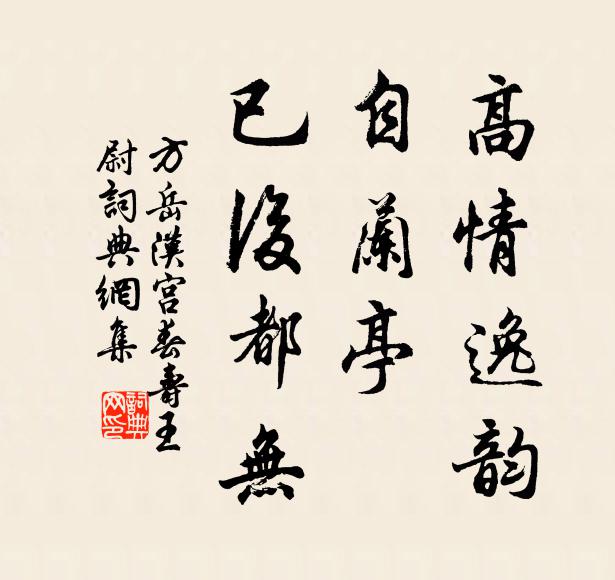 高情逸韵
自蘭亭
已後都無
方岳漢宮春壽王
尉詞典網集
詞典
网印